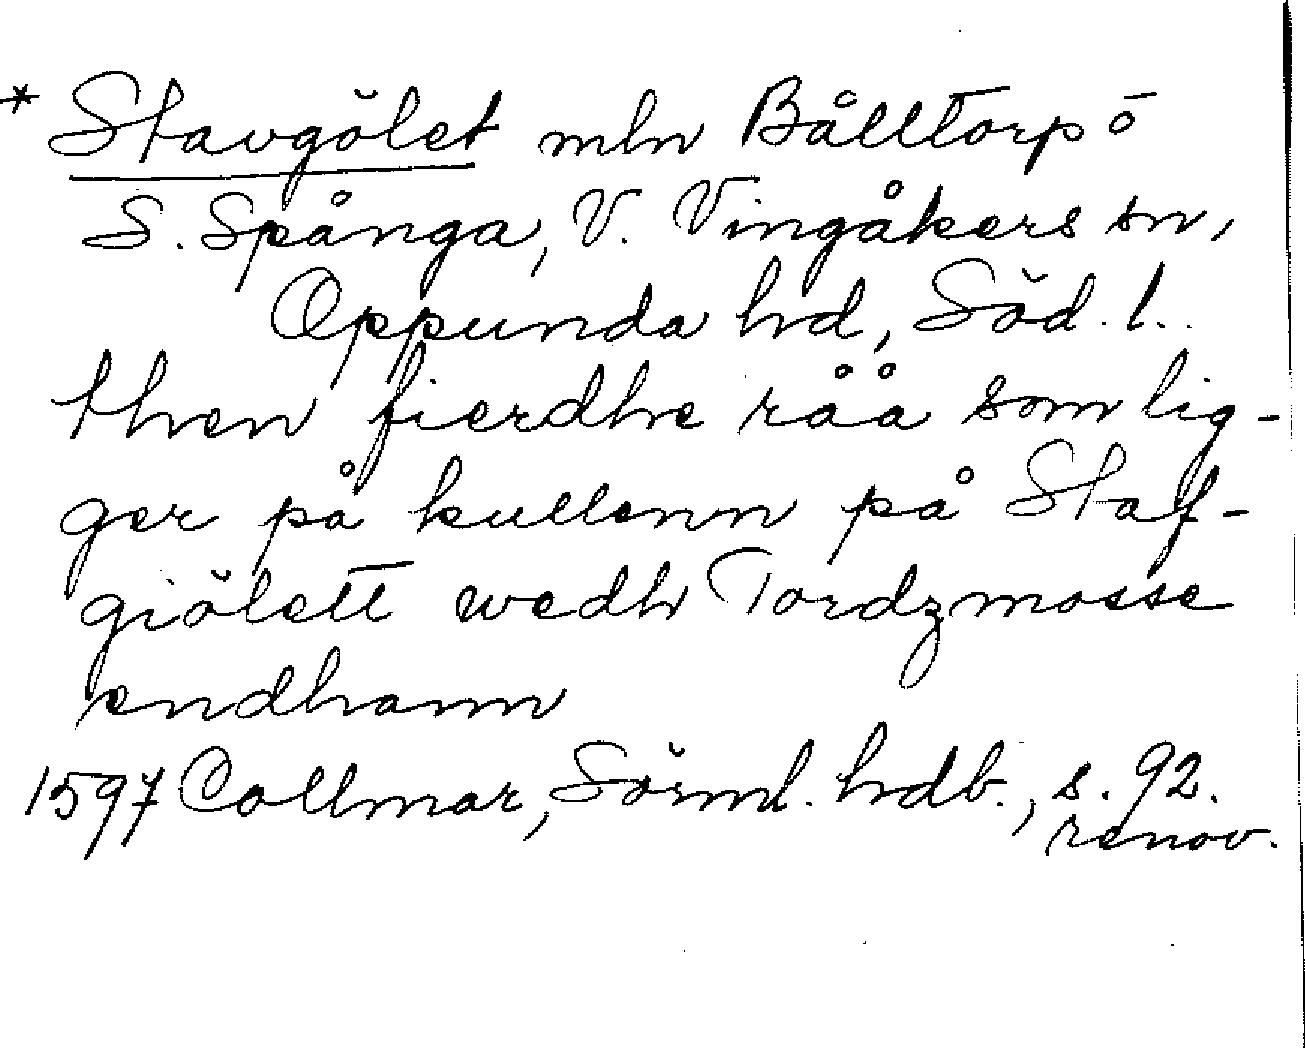 * Stavgölet mln Bålltorp o
S. Spånga, V. Vingåkers sn,
Oppunda hd, Söd. l.
then fierdhe råå som lig-
ger på kullenn på Staf-
giölett wedh Tordzmosse
endhann
1597 Collmar, Sörml. hdb., s. 92.
renov.